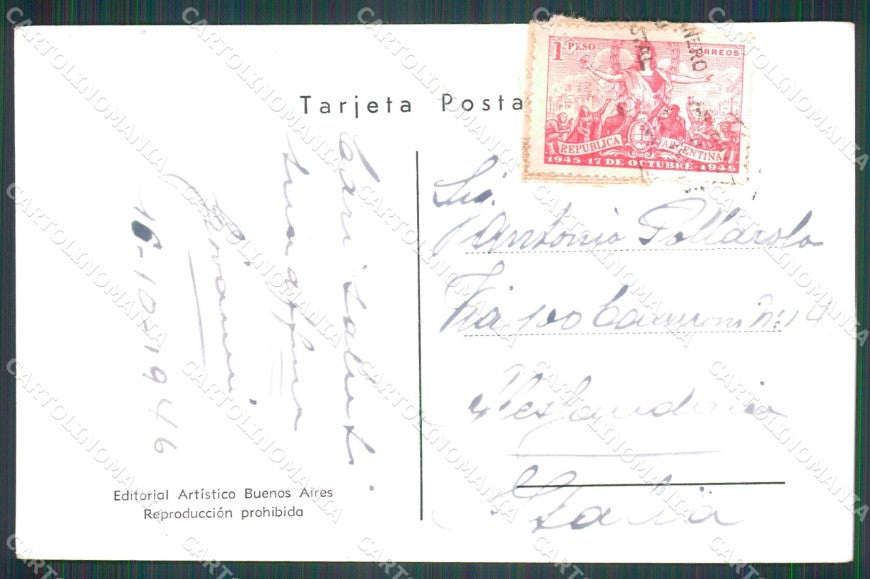 Tarjeta Posta
1 PESO
CORREOS
REPUBLICA ARGENTINA
1945-17 DE OCTUBRE-1946
Cari saluti
Giovanni
16-10-1946
Sig.
Antonio Pollarolo
Via
14
Alessandria
Italia
Editorial Artístico Buenos Aires
Reproducción prohibida
CARTOLINOMANIA